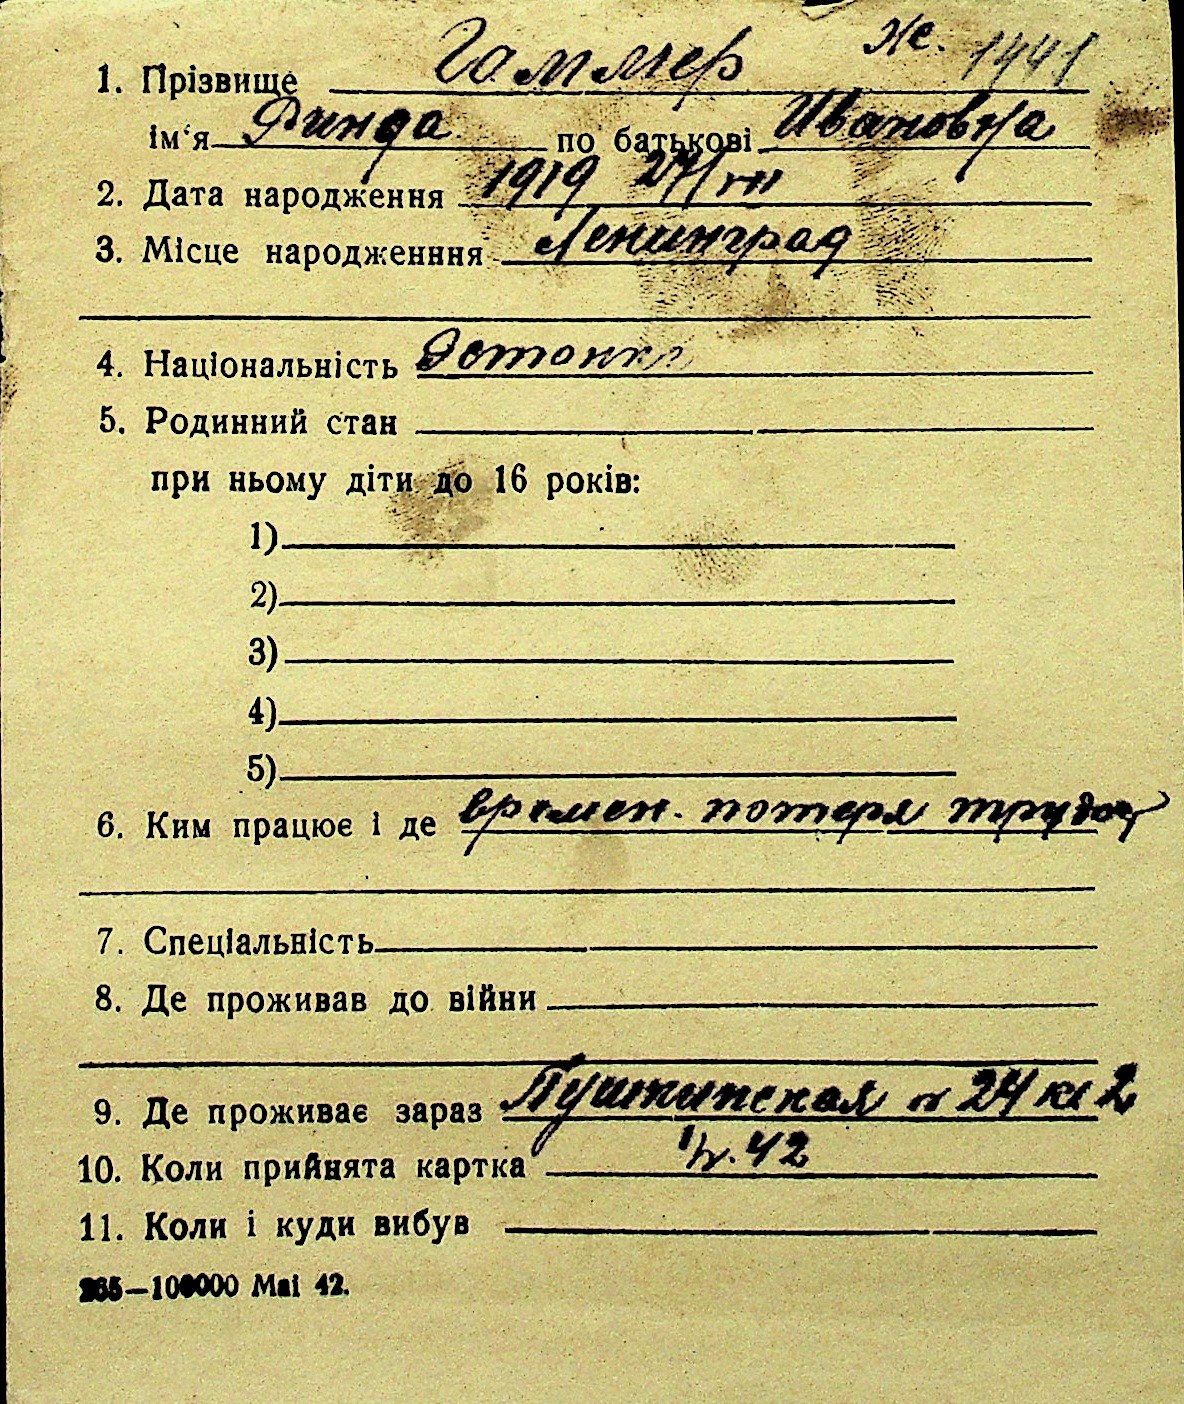 Же. 1441
1. Прізвище Гаммер
ім'я Финда по батькові Ивановна
2. Дата народження 1919 27/VII
3. Місце народженння Ленинград
4. Національність Эстонка
5. Родинний стан
при ньому діти до 16 років:
1)
2)
3)
4)
5)
6. Ким працює і де времен. потеря трудос
7. Спеціальність
8. Де проживав до війни
9. Де проживає зараз Пушкинская 24 кв 2
10. Коли прийнята картка 42
11. Коли і куди вибув
265—100000 Маі 42.